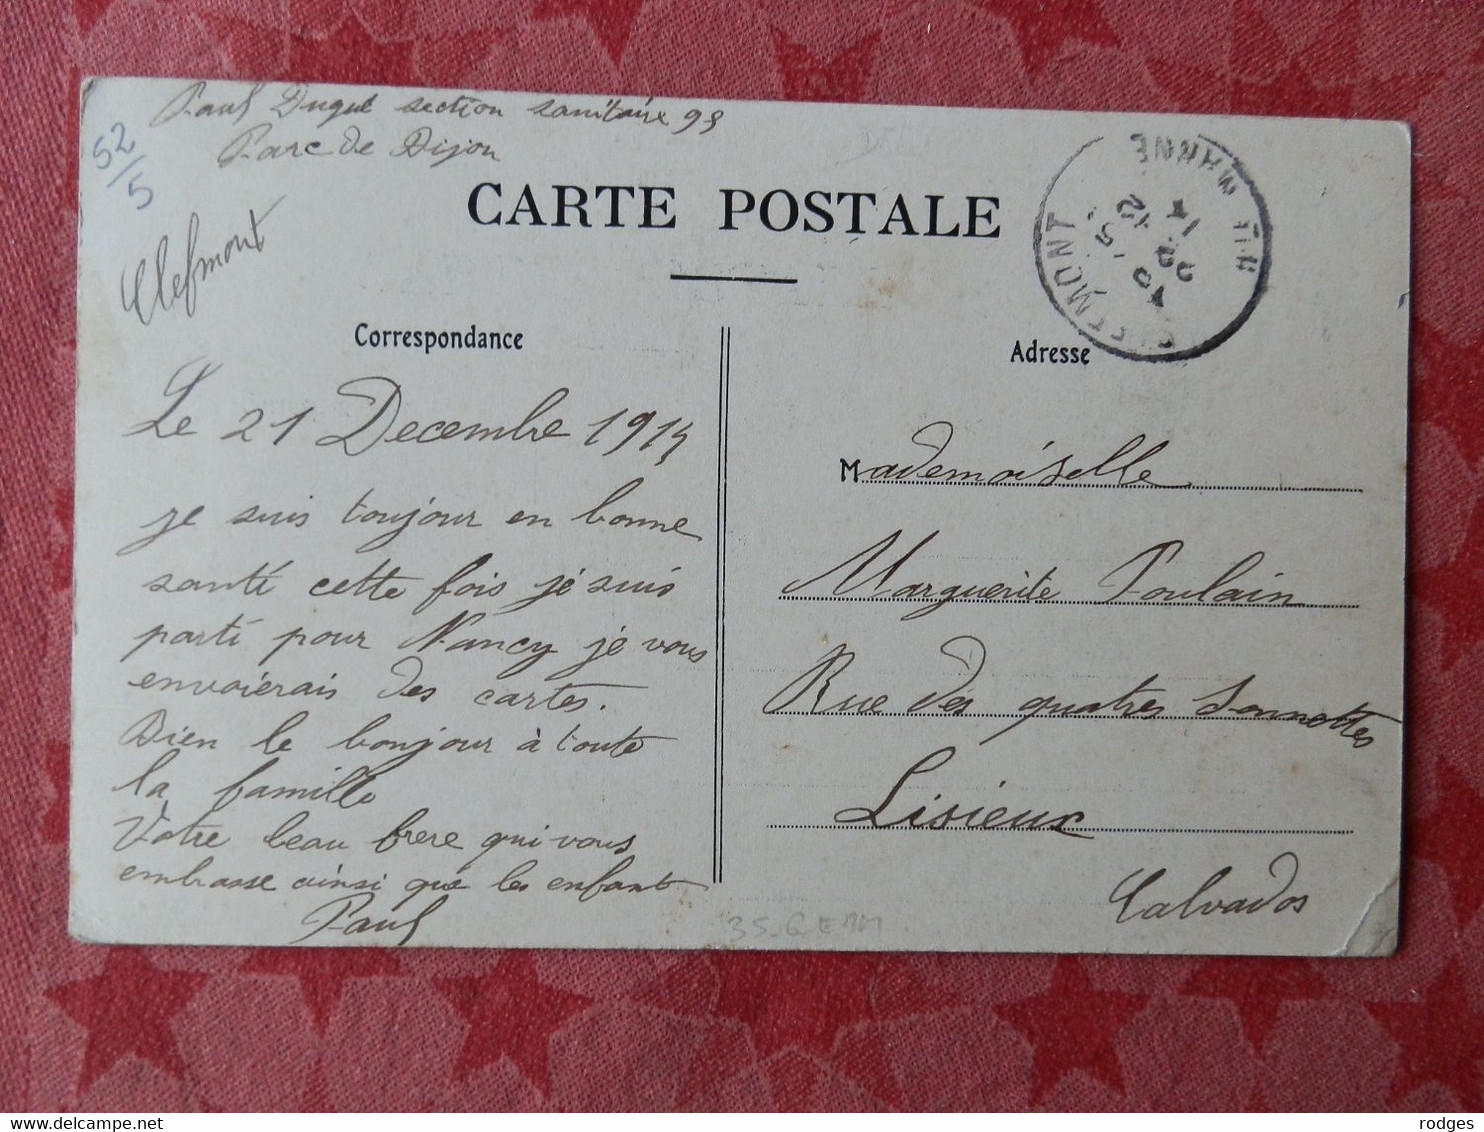 Paul Dugué section sanitaire 95
Parc de Dijon
52/5
Clefmont
CARTE POSTALE
MONT
22 12
14
HTE MARNE
Correspondance
Adresse
Le 21 Decembre 1914
je suis toujour en bonne
santé cette fois je suis
parti pour Nancy je vous
envoierais des cartes.
Bien le bonjour à toute
la famille
Votre beau frere qui vous
embrasse ainsi que les enfant
Paul
Mademoiselle
Marguerite Poulain
Rue des quatres Sonnettes
Lisieux
Calvados
rodges